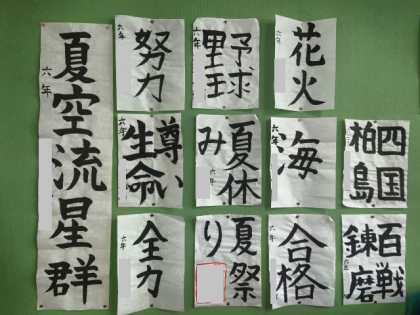 夏空流星群
六年
努力
六年
野球
六年
花火
六年
尊い
生命
六年
夏休
み
六年
海
六年
四国
柏島
全力
六年
夏祭
り
合格
六年
百戦
錬磨
六年